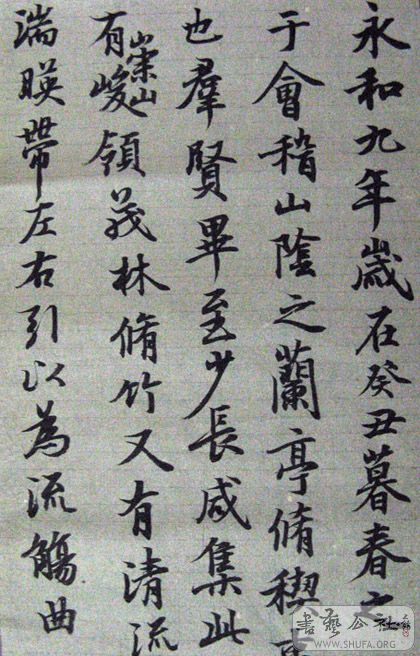 永和九年歲在癸丑暮春之
于會稽山陰之蘭亭脩禊
也羣賢畢至少長咸集此
有崇山峻領茂林脩竹又有清流
湍暎帶左右引以為流觴曲
書藝公社
WWW.SHUFA.ORG